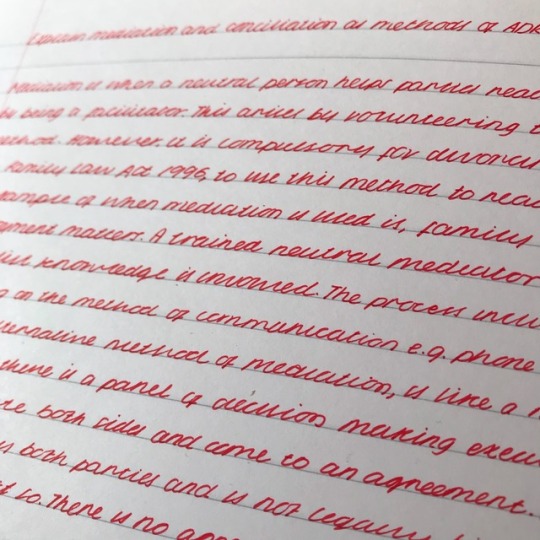 Explain mediation and conciliation as methods of ADR
Mediation is when a neutral person helps parties reac
being a facilitator. This arises by volunteering t
However, it is compulsory for divorci
Family Law Act 1996, to use this method to reac
example of when mediation is used is, family
matters. A trained neutral mediator
knowledge is involved. The process inclu
on the method of communication e.g. phone
alternative method of mediation, is like a
there is a panel of decision making execu
both sides and come to an agreement.
both parties and is not legally
so. There is no app